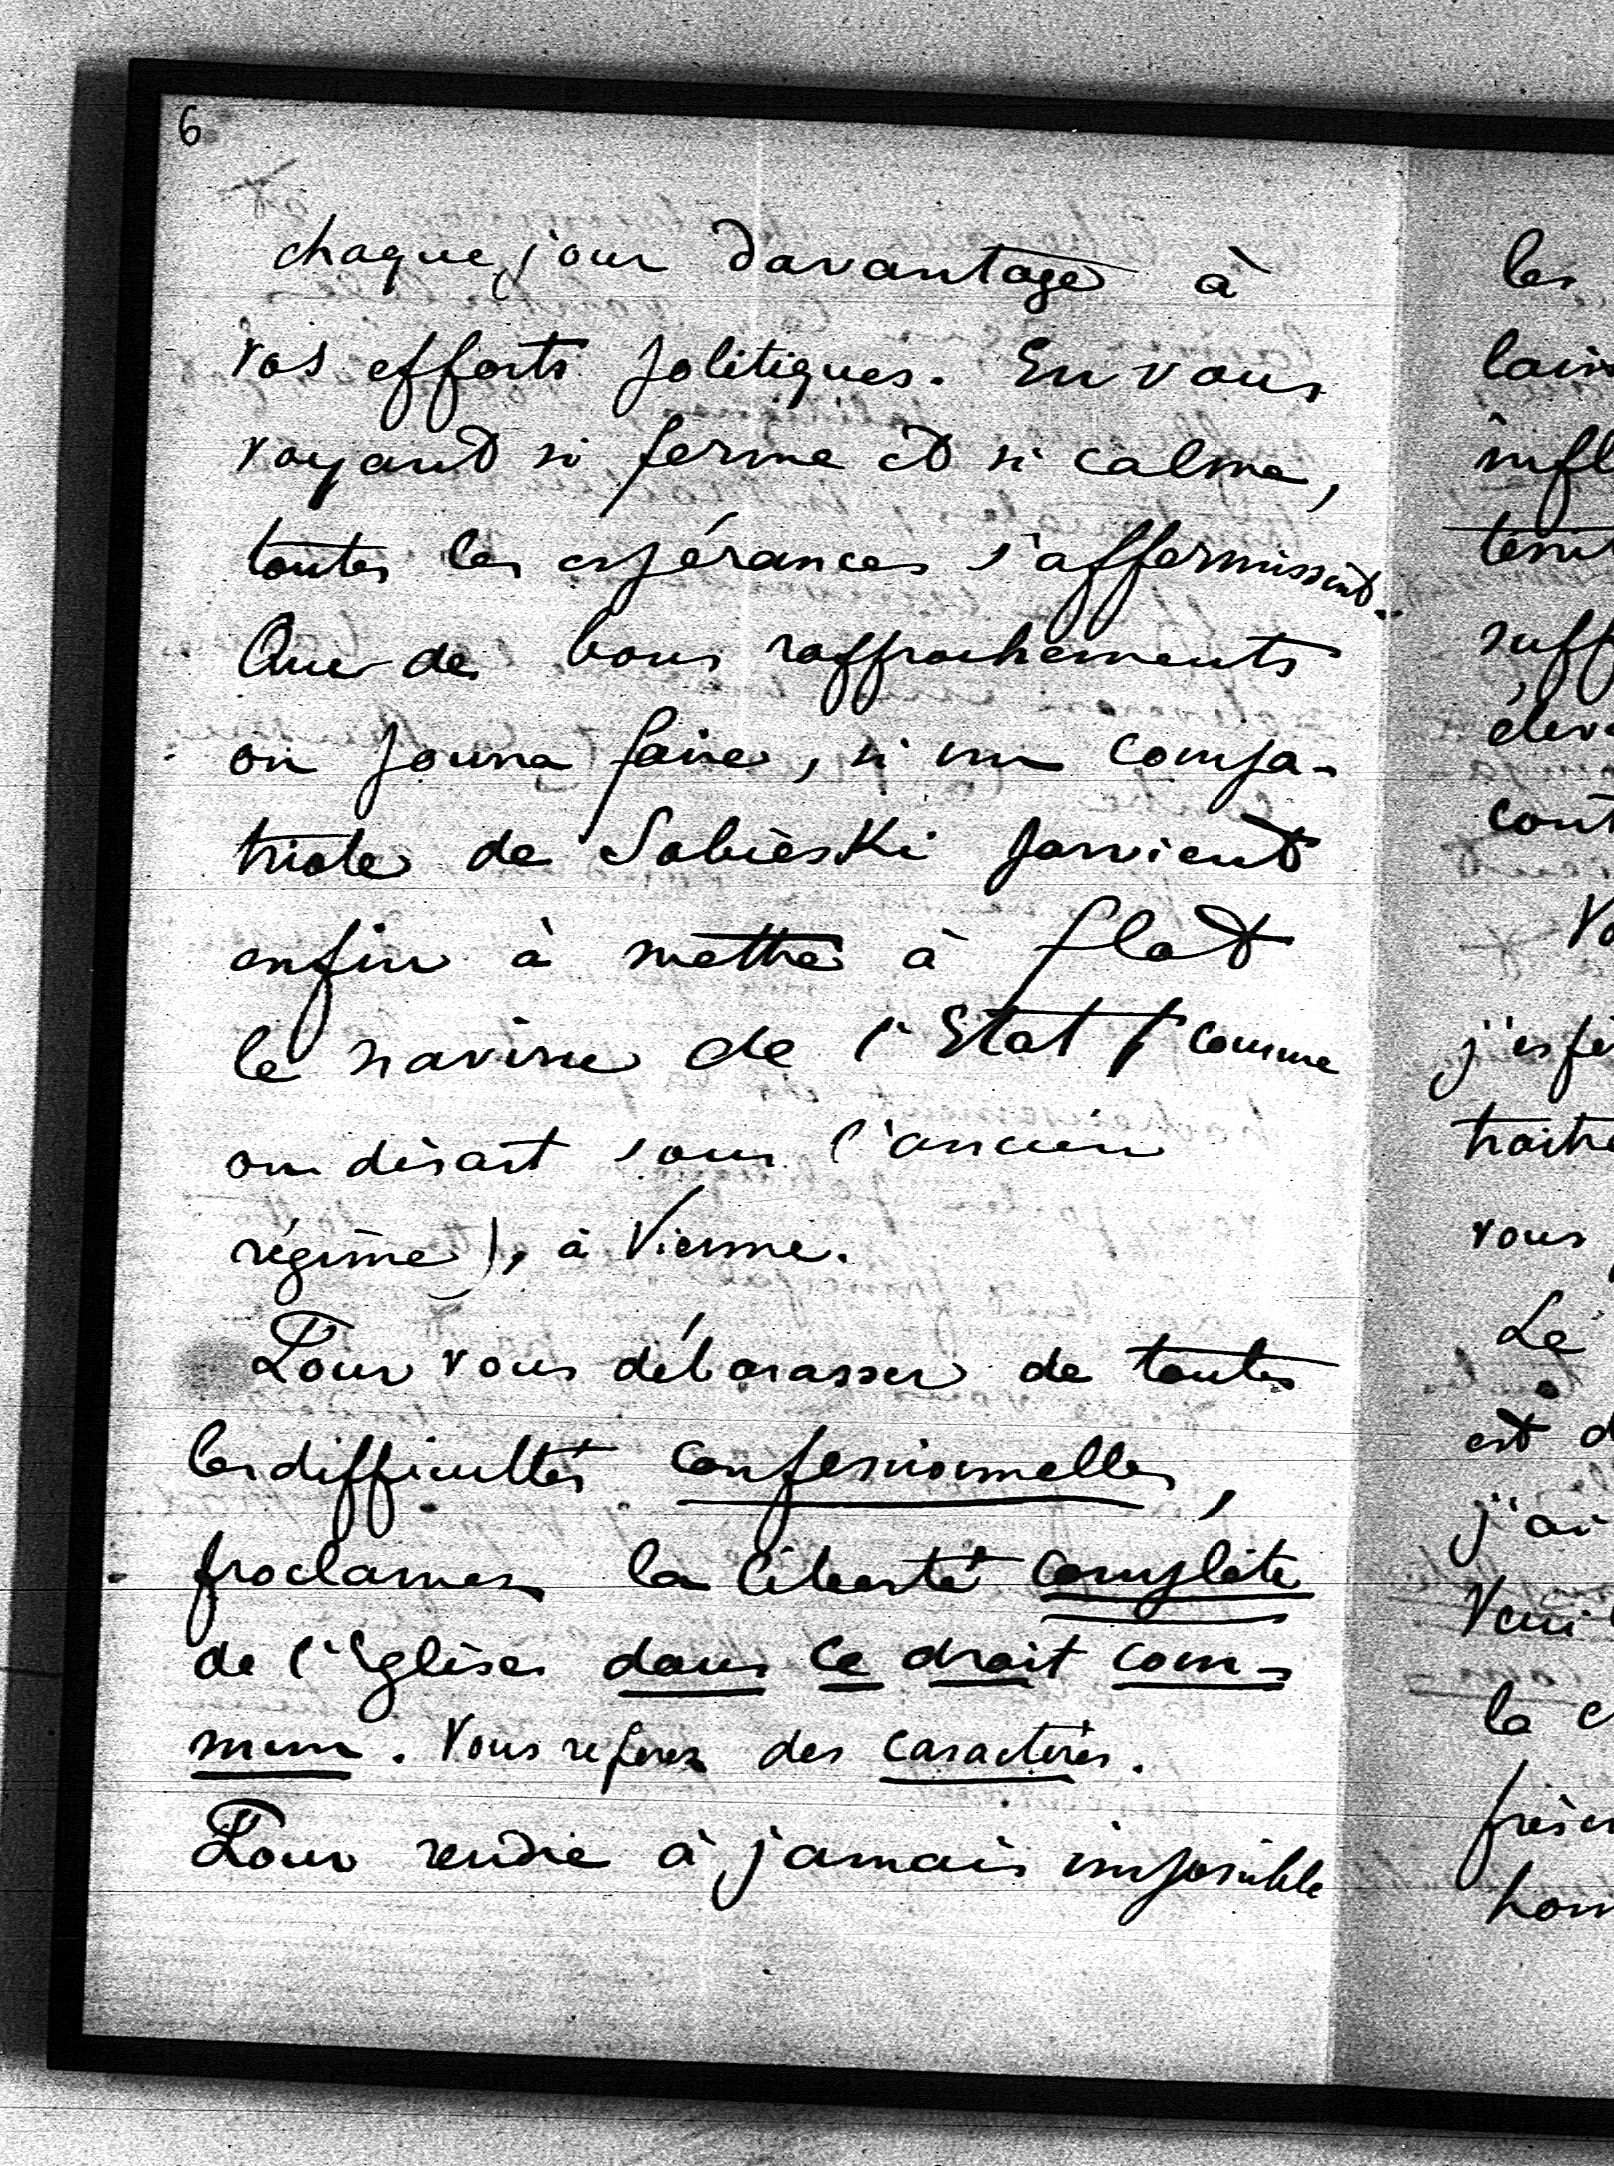 6
chaque jour davantage à
vos efforts politiques. En vous
voyant si ferme et si calme,
toutes les espérances s'affermissent.
Que de bons rapprochements
on pourra faire, si un compa-
triote de Sobièski parvient
enfin à mettre à flot
le navire de l'Etat (comme
on disait sous l'ancien
régime), à Vienne.
Pour vous débarasser de toutes
les difficultés confessionnelles,
proclamez la liberté complète
de l'Eglise dans le droit com-
mun. Vous referez des caractères.
Pour rendre à jamais impossible
les
lois
infl
tenu
suff
élev
cont
Vo
j'espè
traitr
vous
Le
est d
j'ai
la c
hom